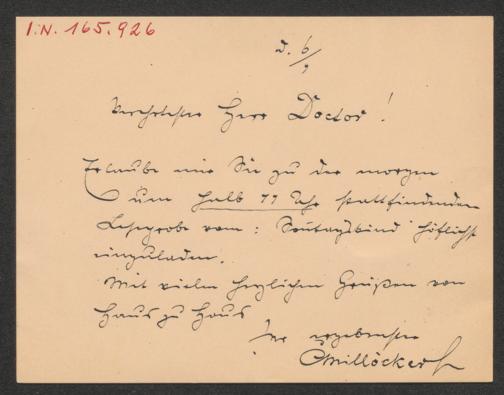 I.N. 165.926
d. 6/9
Verehrtester Herr Doctor!
Erlaube mir Sie zu der morgen
um halb 11 Uhr stattfindenden
Leseprobe vom: Sontagskind höflichst
einzuladen.
Mit vielen herzlichen Grüßen von
Haus zu Haus
Ihr ergebenster
CMillöcker